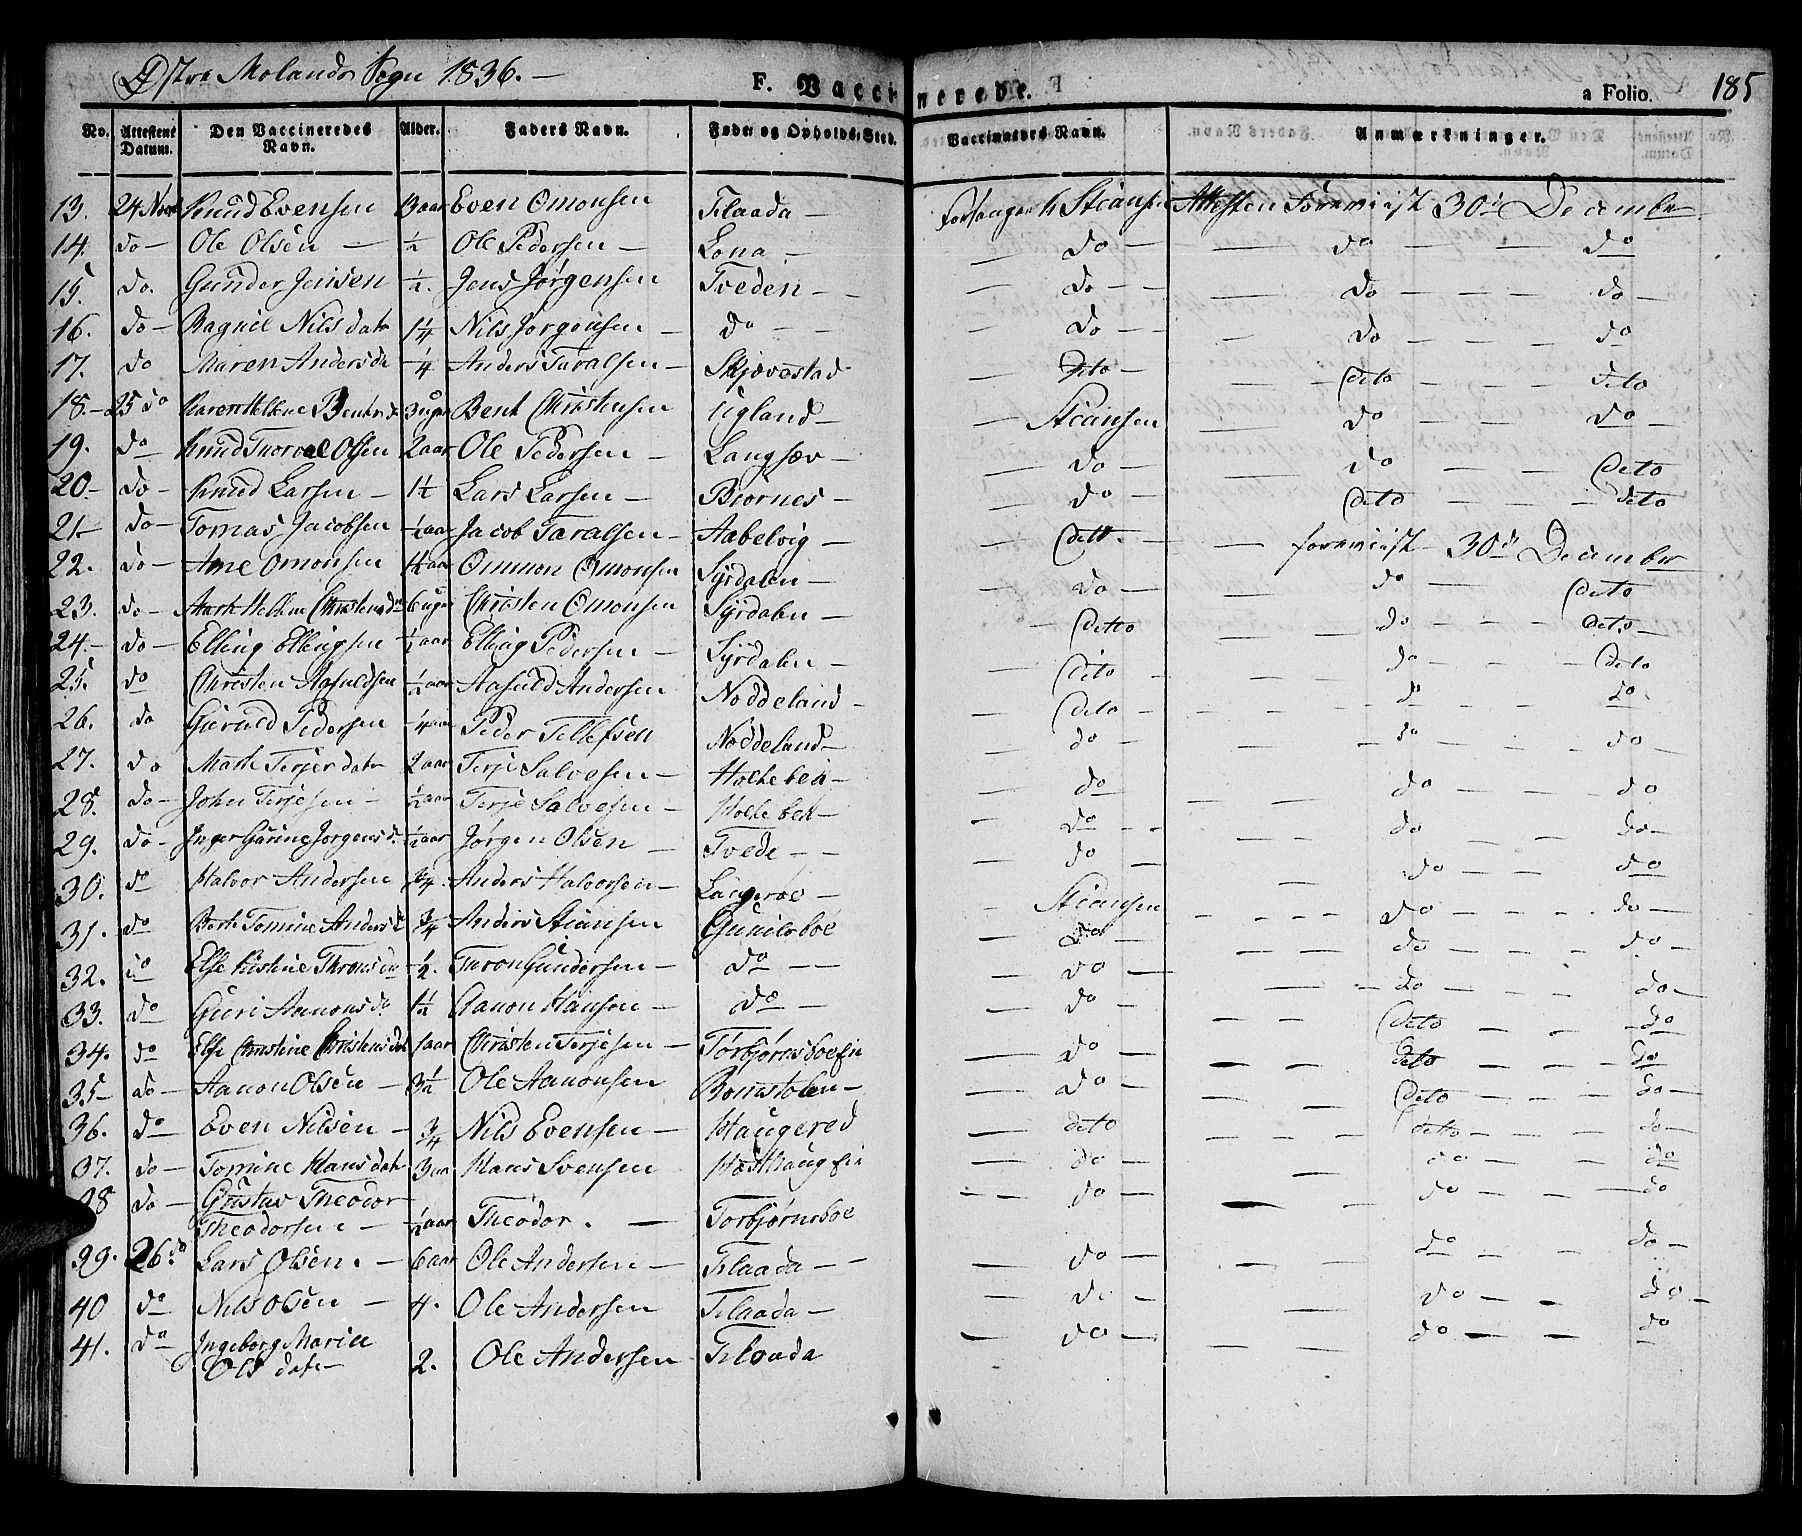 Østre Molands Sogn 1836. —
F. Vaccinerede. a Folio. 185
No. Attestens Datum. Den Vaccineredes Navn. Alder. Faders Navn. Føde- og Opholds-Sted. Vaccinateurs Navn. Anmærkninger.
13. 24 Novr Knud Evensen 3 aar Even Omonsen Flaada — Stiansen Attesten 30d December
14. do — Ole Olsen — ½ Ole Pedersen — Lona — — do — — do — — do
15. do. Gunder Jensen ½. Jens Jørgensen Tveden — — — do — — do — — — do —
16. do — Ragnil Nilsdatr 1¼ Nils Jørgensen — do — — — do — — do — — — do
17. do Maren Andersda ¼ Anders Taralsen — Skjævestad — dto — — deto — — deto
18. — 25 do Karen Helene Bentsd 3 uger Bent Christensen Ugland — — Stiansen — do — — — do —
19. do Knud Torval Olsen 2 aar Ole Pedersen — Langsæv — — do — — do — — deto
20 — do — Knud Larsen — 1½ Lars Larsen — Biornes — — do — — deto — — deto
21 — do — Tomas Jacobsen ½ aar Jacob Taralsen — Aabelvig — — dett. — — 30d December
22. do — Ane Omonsen 1½ aar Ommon Omonsen Syrdalen — — do — — do — deto
23. do — Helene Christensda 6 uger Christen Omonsen Syrdalen — deto — — do — — — deto —
24. — do — Elling Ellingsen ½ aar Elling Pedersen — Syrdalen — — deto — — do — — — deto
25. do Christen Aasuldsen ½ aar Aasuld Andersen Noddeland — — deto — — do — — — do
26. do Pedersen ¼ aar Peder Tellefsen Noddeland — — do — — do — — — do —
27. do Terjesdatr 2 aar Terje Salvesen — — do — — — do — — — do
28. do — John Terjesen — ½ aar Terje Salvesen — — do — — — do — — — do —
29. do — Inger Jorgensd. ½ aar Jørgen Olsen — Tvede — — — do — — — do — — — do
30. do Halvor Andersen ¾. Anders Halvorsen — Langeroe — — Stiansen — — — do — — — do —
31. do Tomine Andersd ¾ Anders Stiansen — do — — — do — — do —
32. do Else Kistine Throns da ½. Tron Gundersen — do — — — do — — — do — — — do —
33. do Guri Aanonsda 1½ Aanon Hansen — do — — do — — — deto — — — do
34. do Else Christine Christensdatr 1 aar Christen Terjesen — Torbjørnsboe — do — — — deto — — do
35 — do — Aanon Olsen — 3½ Ole Aanonsen — do — — — — deto — — — do —
36. do — Even Nilsen — ¾ Nils Evensen — Haugered — deto — — — detto — — — do —
37. do — Tomine Hansdatr 3 aar Hans Svensen — do — — — — do — — — do
38 do — Gustav Theodor
Theodorsen — ½ aar Theodor. — Torbjørnsboe — — do — — — do — — do
39. 26 do Lars Olsen. — 6 aar Ole Andersen — Flaada — — — do — — — do — — do —
40 do Nils Olsen — 4. Ole Andersen Flaada — — do — — do — — do —
41. do Ingeborg Marie
Olsdatr — 2. Ole Andersen Flaada — do — — do — — — do